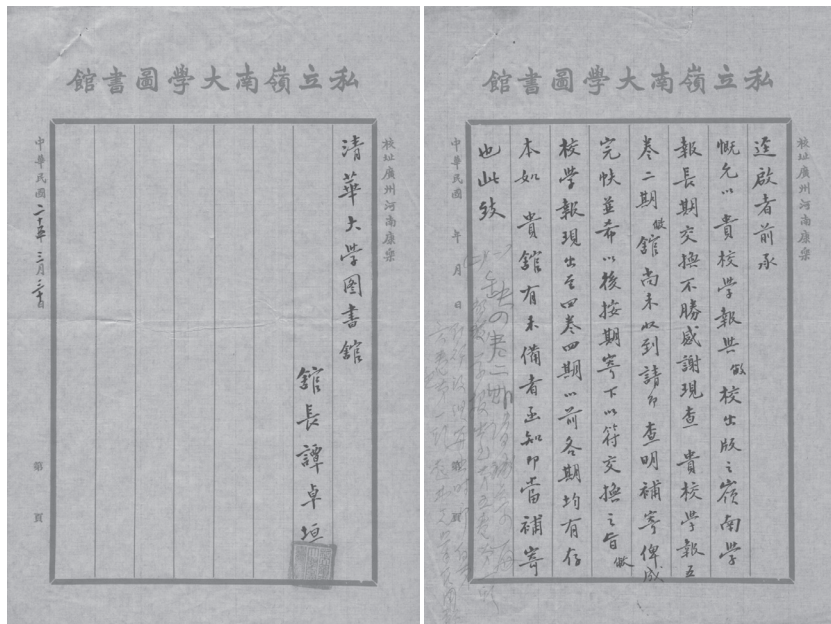 私立嶺南大學圖書館
校址廣州河南康樂
逕啟者前承
慨允以貴校學報與敝校出版之嶺南學
報長期交換不勝感謝現查 貴校學報五
卷二期敝館尚未收到請即查明補寄俾成
完帙並希以後按期寄下以符交換之旨敝
校學報現出至四卷四期以前各期均有存
本如 貴館有未備者函知即當補寄
也此致
中華民國 年 月 日
第 頁
私立嶺南大學圖書館
校址廣州河南康樂
清華大學圖書館
館長譚卓垣
中華民國二十五年三月三十日
第 頁